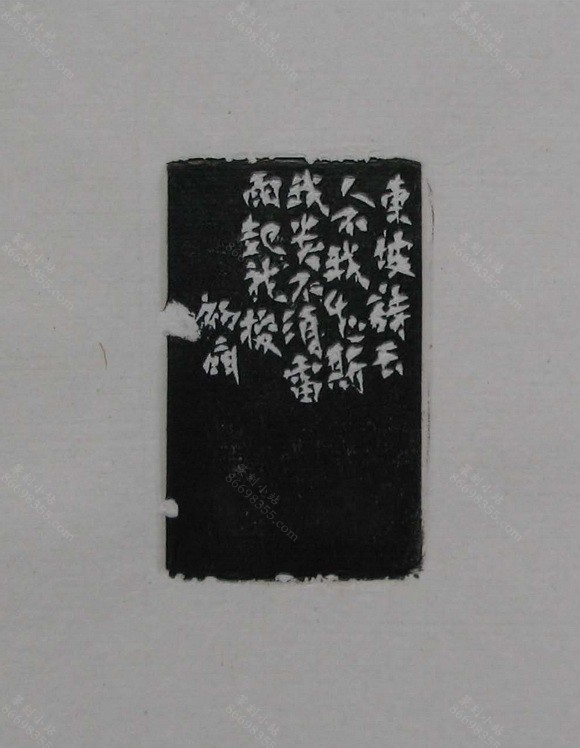 東坡詩云
人不我知斯
我貴不須雷
雨起龍梭
篆刻小站
86698355.com